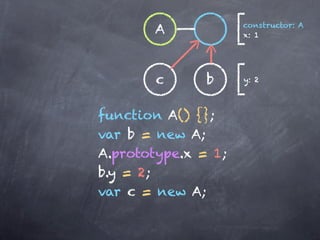 A
constructor: A
x: 1
c
b
y: 2
function A() {};
var b = new A;
A.prototype.x = 1;
b.y = 2;
var c = new A;